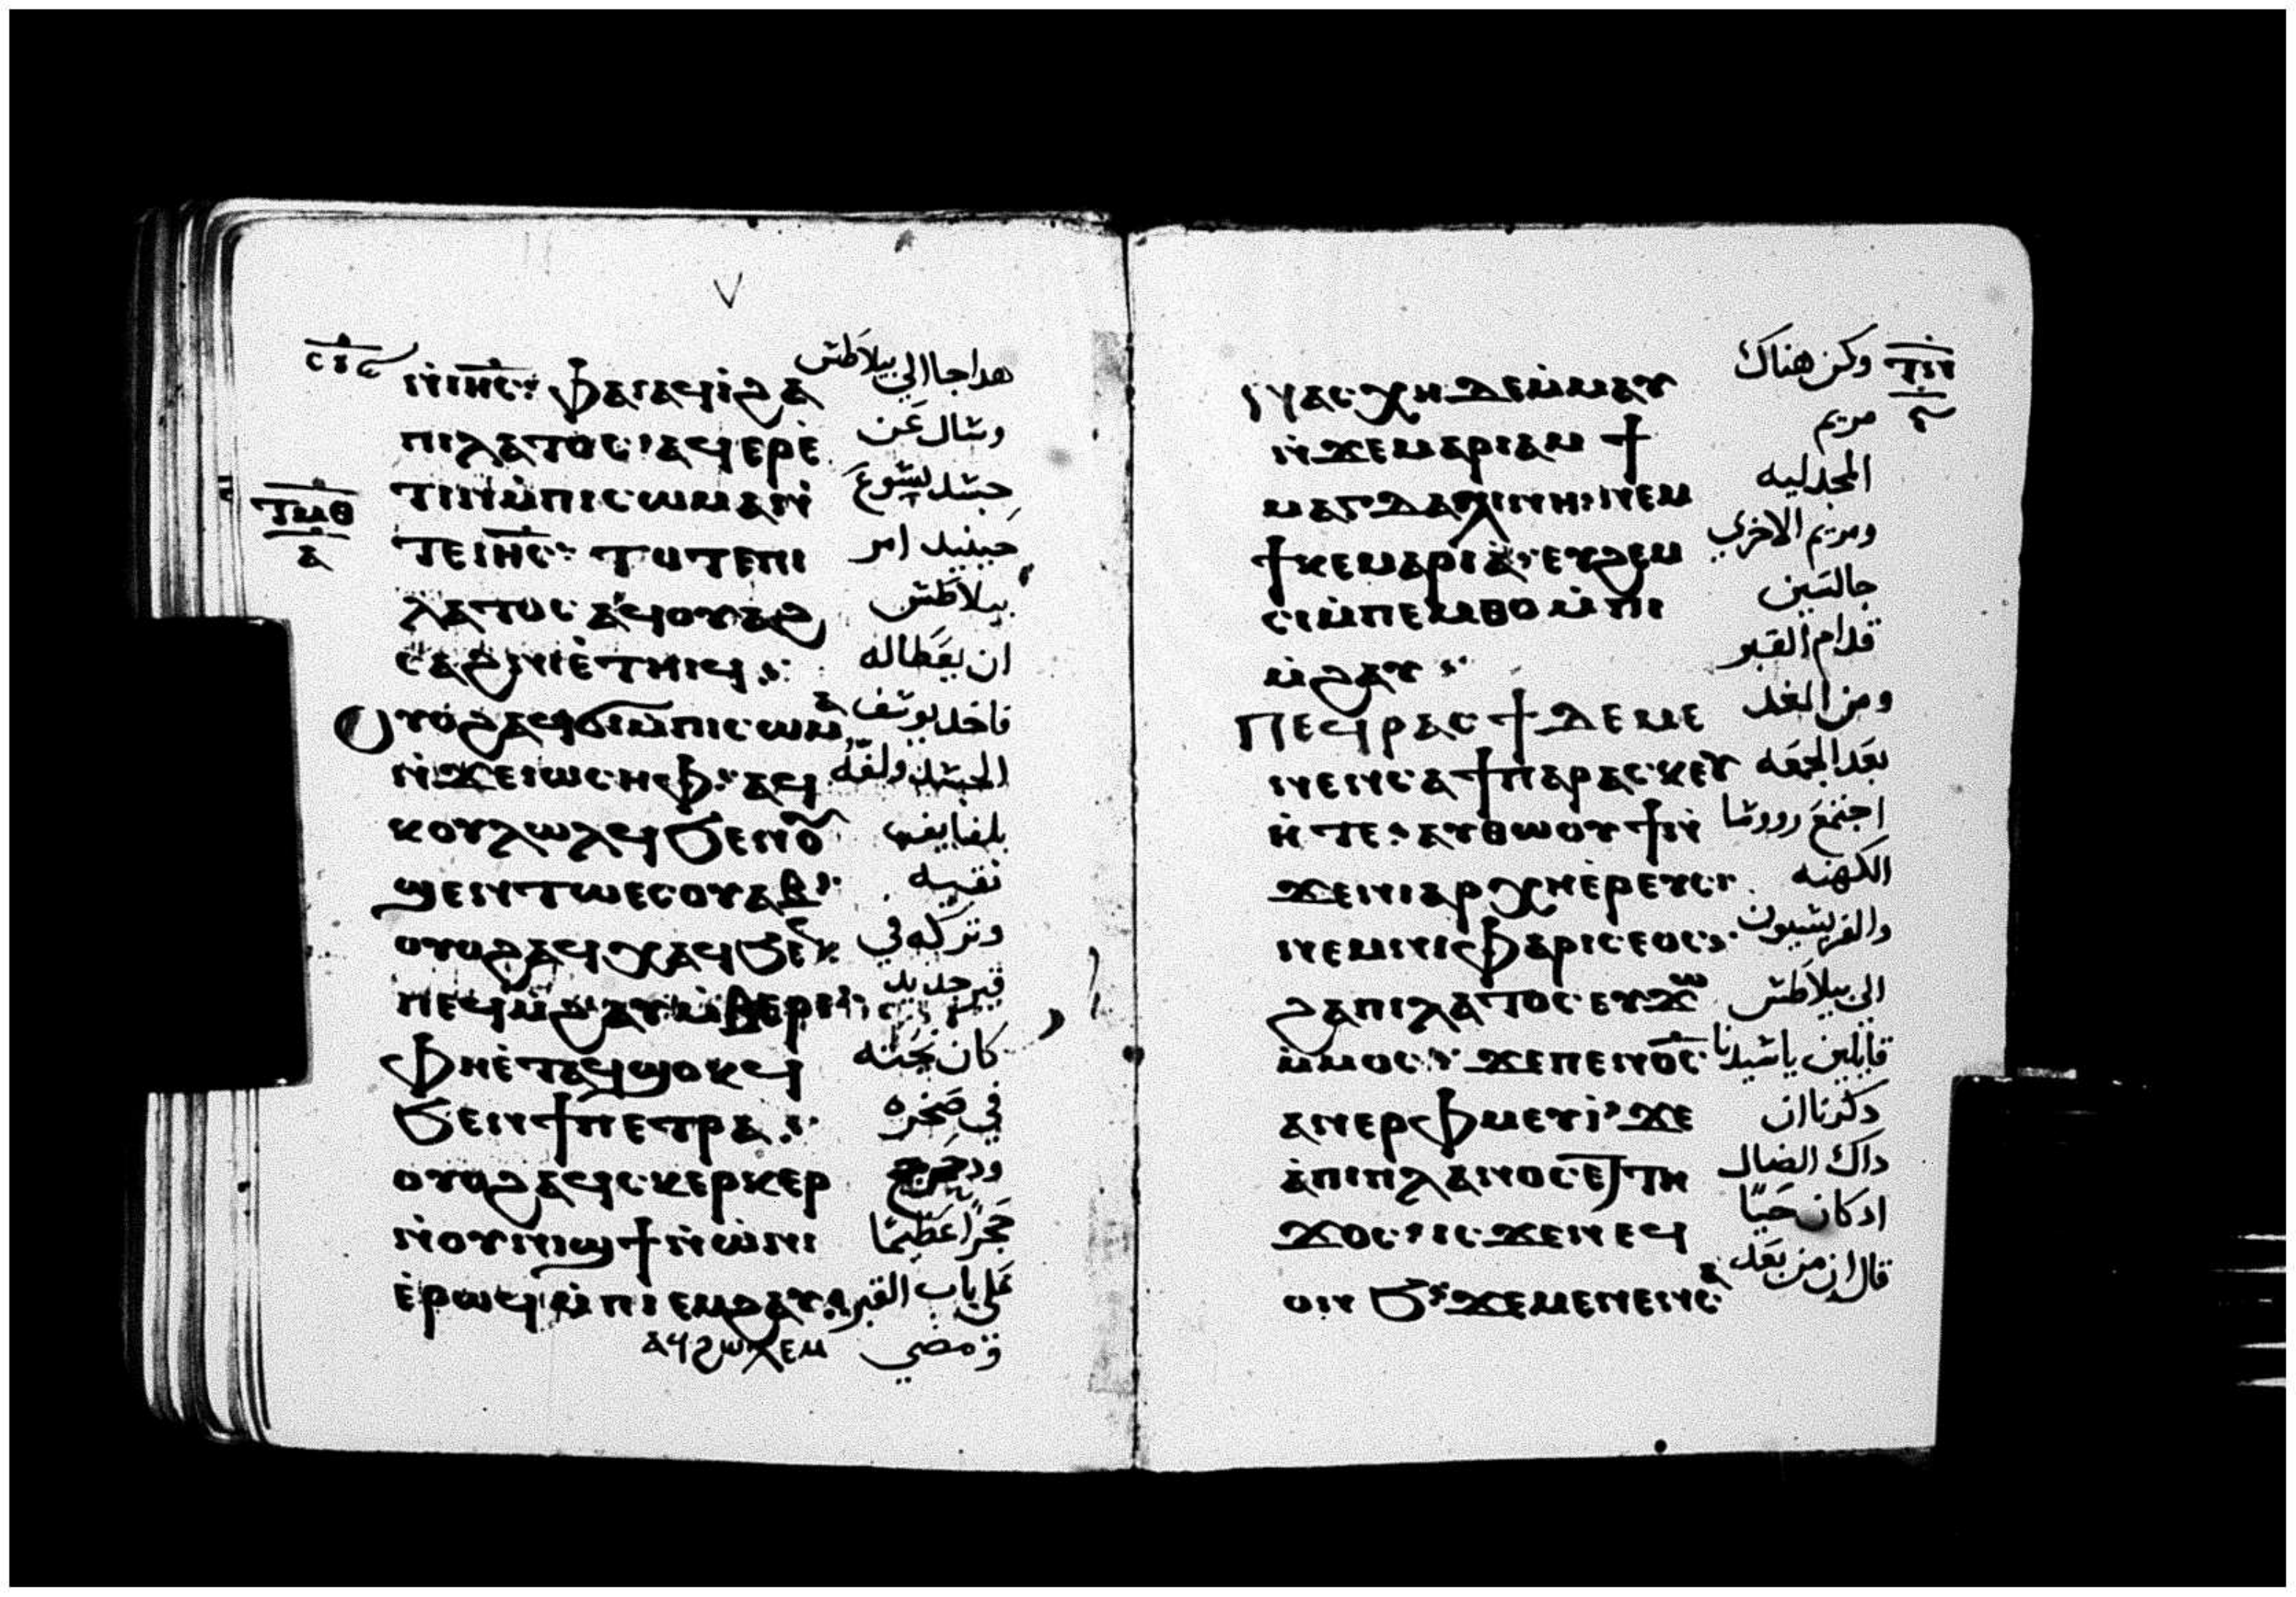 ⲛ̀ⲓⲏ̅ⲥ̅ ⲫⲁⲓ ⲁϥⲓ̀ ϩⲁ هدا جا الي بيلاطس
ⲡⲓⲗⲁⲧⲟⲥ ⲁϥⲉⲣⲉ̀ وسال عن
ⲧⲓⲛ ⲙ̀ⲡⲓⲥⲱⲙⲁ ⲛ̀ جسد يسوع
ⲧⲉ ⲓⲏ̅ⲥ̅ ⲧⲟⲧⲉ ⲡⲓ حينيد امر
ⲗⲁⲧⲟⲥ ⲁϥⲟⲩⲁϩ بيلاطس
ⲥⲁϩⲛⲓ ⲉ̀ⲧⲏⲓϥ ان يعطاله
ⲟⲩⲟϩ ⲁϥϭⲓ ⲙ̀ⲡⲓⲥⲱⲙⲁ فاخد يوسف
ⲛ̀ϫⲉ ⲓⲱⲥⲏⲫ ⲁϥ الجسد ولفه
ⲕⲟⲩⲗⲱⲗϥ ϧⲉⲛ ⲟ̅ بلفايف
ϣⲉⲛⲧⲱ ⲉⲥⲟⲩⲁⲃ نقيه
ⲟⲩⲟϩ ⲁϥⲭⲁϥ ϧⲉⲛ وتركه في
ⲡⲉϥⲙ̀ϩⲁⲩ ⲙ̀ⲃⲉⲣⲓ قبر جديد
ⲫⲏ ⲉ̀ⲧⲁϥϣⲟⲕϥ كان نحته
ϧⲉⲛ ϯⲡⲉⲧⲣⲁ في صخره
ⲟⲩⲟϩ ⲁϥⲥⲕⲉⲣⲕⲉⲣ ودحرج
ⲛ̀ⲟⲩⲛⲓϣϯ ⲛ̀ⲱ̀ⲛⲓ حجرا عظيما
ⲉ̀ⲣⲱϥ ⲙ̀ⲡⲓⲉⲙϩⲁⲩ علي باب القبر
ⲁϥϩⲱⲗ ⲉⲙ ومضي
ⲛⲁⲥⲭⲏ ⲇⲉ ⲙ̀ⲙⲁⲩ وكن هناك
ⲛ̀ϫⲉ ⲙⲁⲣⲓⲁⲙ ϯ مريم
ⲙⲁⲅⲇⲁⲗⲓⲛⲏ ⲛⲉⲙ المجدليه
ϯⲕⲉⲙⲁⲣⲓⲁ ⲉⲩϩⲉⲙ ومريم الاخري
ⲥⲓ ⲙ̀ⲡⲉⲙⲑⲟ ⲙ̀ⲡⲓ جالستين
ⲙ̀ϩⲁⲩ قدام القبر
ⲡⲉϥⲣⲁⲥϯ ⲇⲉ ⲙⲉ ومن الغد
ⲛⲉⲛⲥⲁ ϯⲡⲁⲣⲁⲥⲕⲉⲩ بعد الجمعه
ⲏ̀ ⲧⲉ ⲁⲩⲑⲱⲟⲩϯ ⲛ̀ اجتمع رووسا
ϫⲉ ⲛⲓⲁⲣⲭⲏⲉ̀ⲣⲉⲩⲥ الكهنه
ⲛⲉⲙ ⲛⲓⲫⲁⲣⲓⲥⲉⲟⲥ والفريسيون
ϩⲁ ⲡⲓⲗⲁⲧⲟⲥ ⲉⲩϫⲱ الي بيلاطس
ⲙ̀ⲙⲟⲥ ϫⲉ ⲡⲉⲛⲟ̅ⲥ̅ قايلين ياسيدنا
ⲁⲛⲉⲣⲫⲙⲉⲩⲓ̀ ϫⲉ دكرنا ان
ⲁ̀ ⲡⲓⲡⲗⲁⲛⲟⲥ ⲉⲧⲏ داك الضال
ϫⲟⲥ ⲓⲥϫⲉⲛ ⲉϥ اد كان حيا
ⲟⲛϧ ϫⲉ ⲙⲉⲛⲉⲛⲥⲁ قال ان من بعد